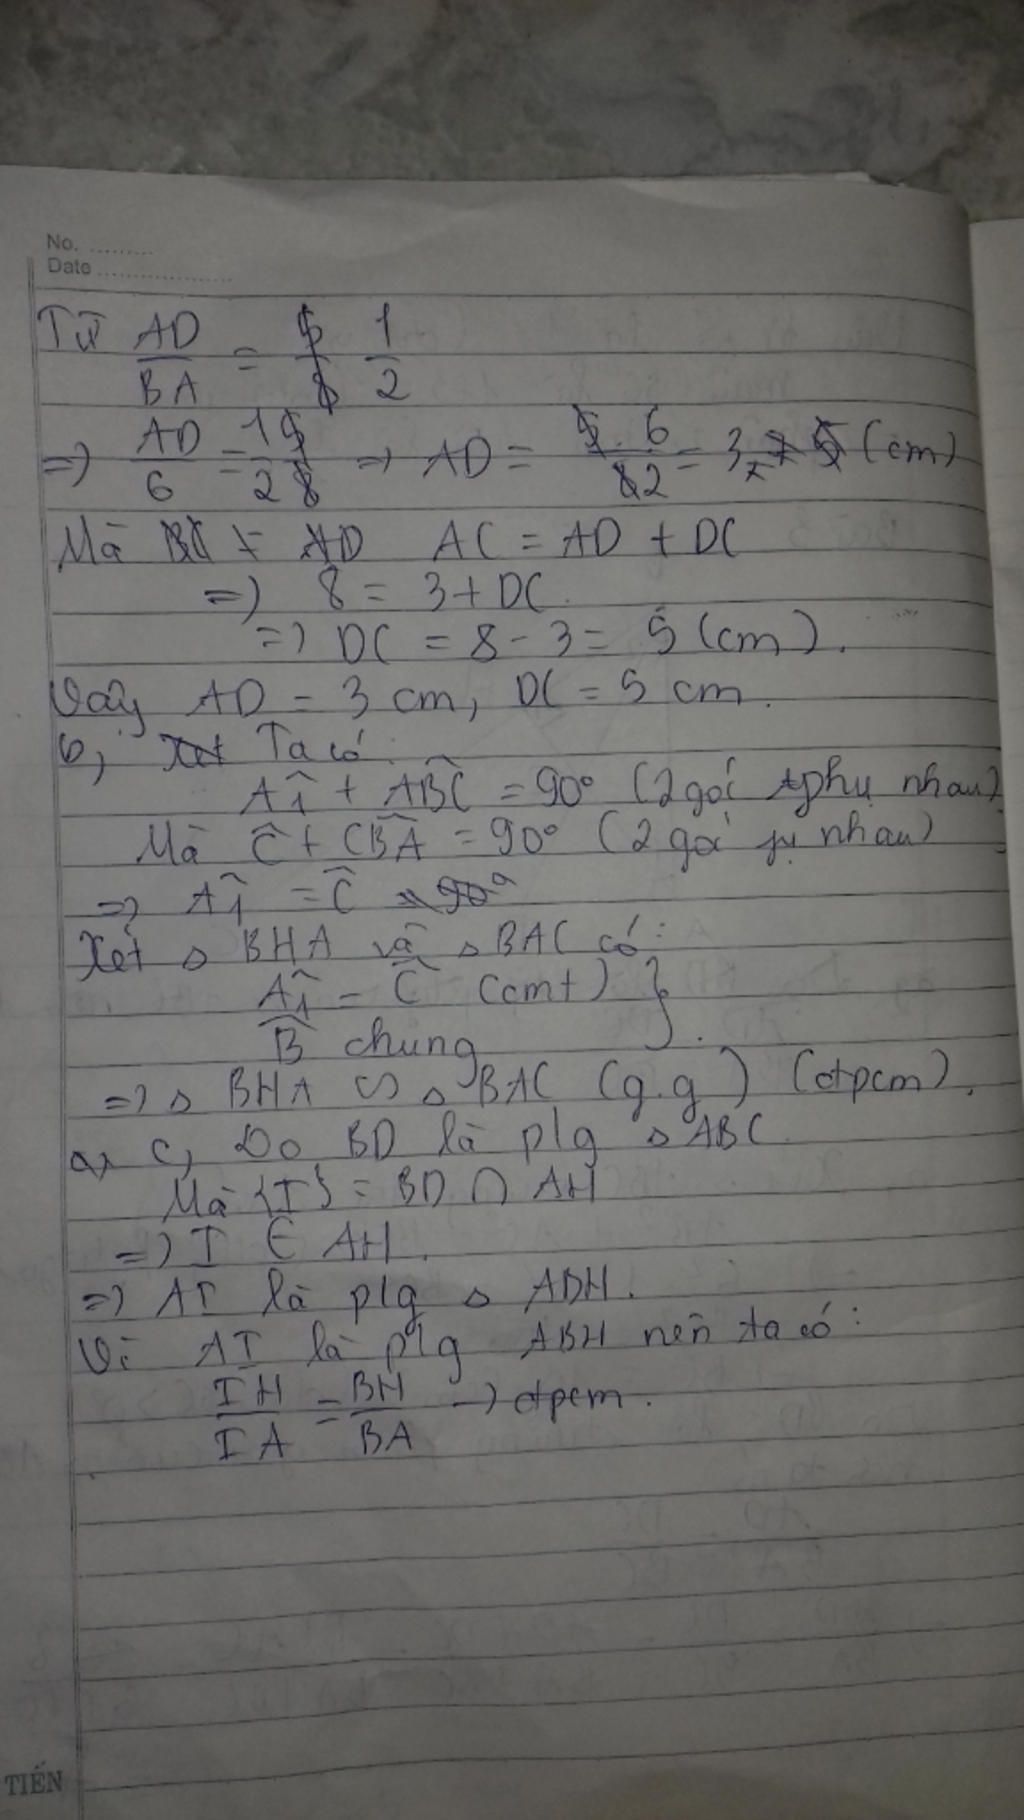 No. ........
Date ..................
Từ AD/BA = 1/2
=> AD/6 = 1/2 => AD = 6/2 = 3 (cm)
Mà AC = AD + DC
=> 8 = 3 + DC.
=> DC = 8 - 3 = 5 (cm).
Vậy AD = 3 cm, DC = 5 cm.
b, Ta có:
Â1 + ABC^ = 90° (2 góc phụ nhau)
Mà Ĉ + CBA^ = 90° (2 góc nhau)
=> Â1 = Ĉ
Xét △ BHA và △ BAC có:
Â1 = Ĉ (cmt) }
B^ chung.
=> △ BHA ∽ △ BAC (g.g) (đpcm).
c, Do BD là plg △ ABC
Mà {I} = BD ∩ AH
=> I ∈ AH.
=> AI là plg △ ABH.
Vì AI là plg ABH nên ta có:
IH/IA = BH/BA -> đpcm.
TIẾN